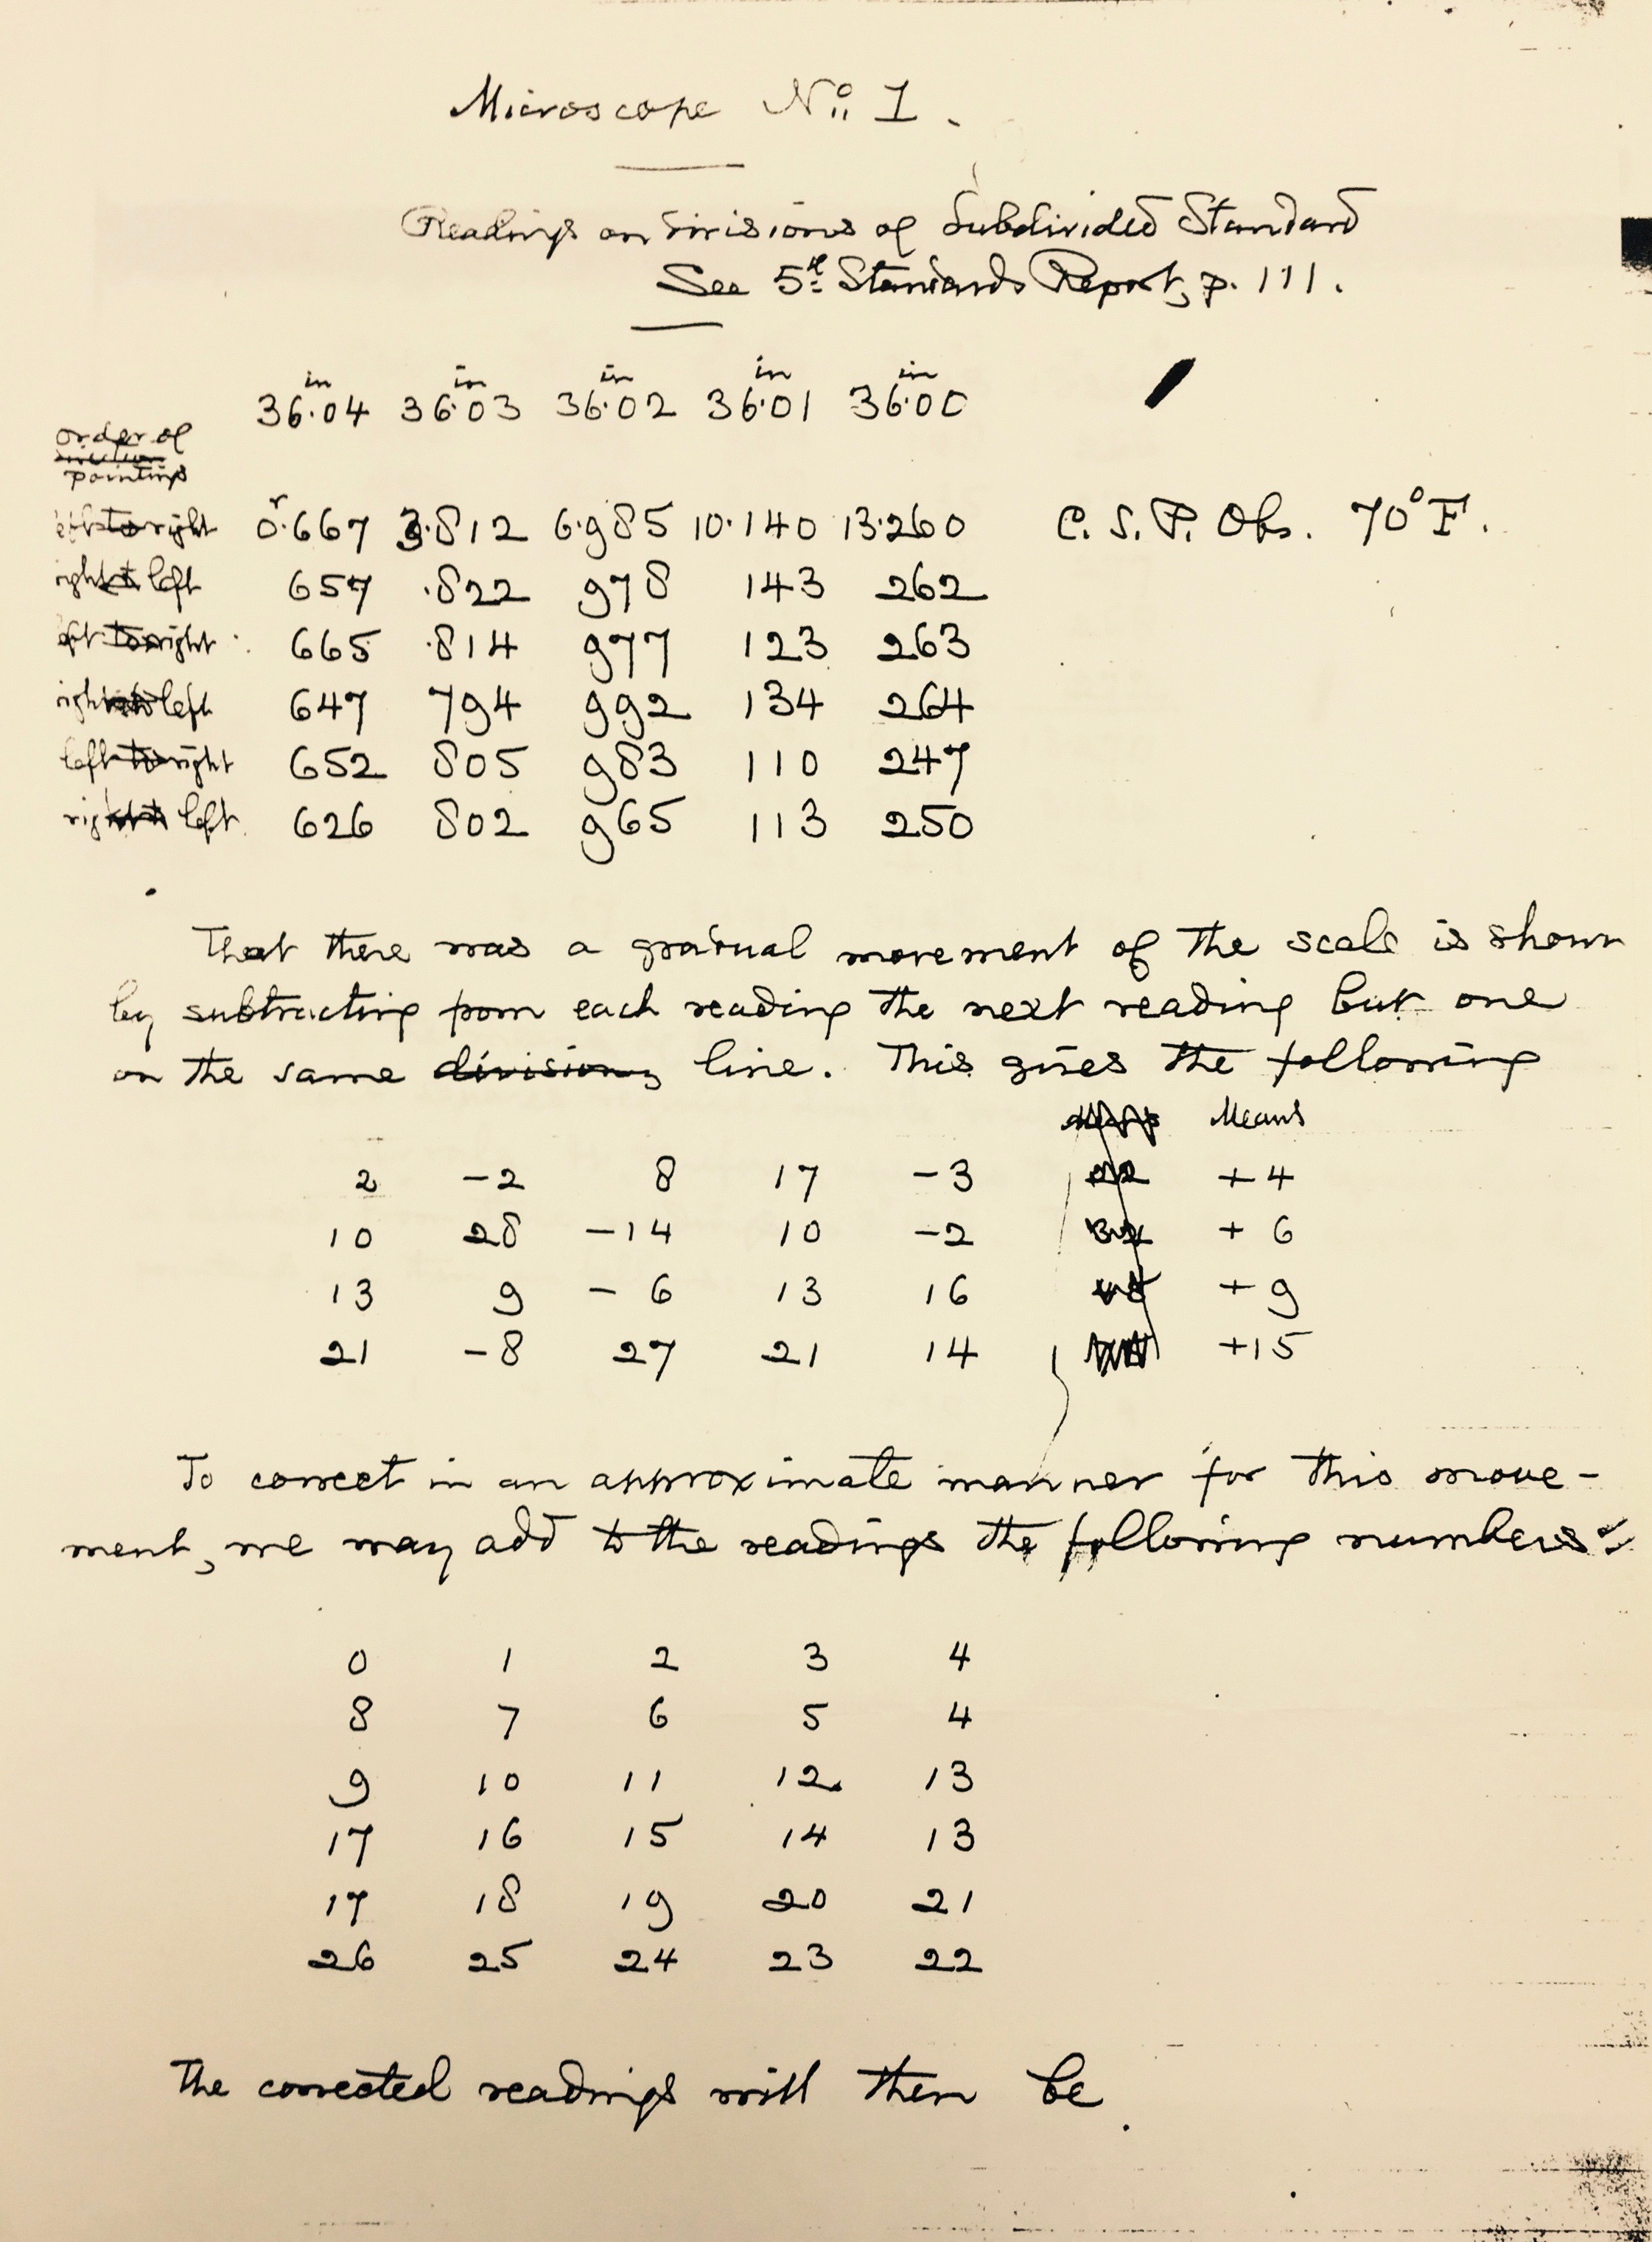 Microscope No: 1.
Readings on Divisions of Subdivided Standard
See 5th Standards Report, p. 111.
in in in in in
36.04 36.03 36.02 36.01 36.00
order of
pointings
r
left to right 0.667 3.812 6.985 10.140 13.260 C. S. P. Obs. 70°F.
right to left 657 .822 978 143 262
left to right 665 .814 977 123 263
right to left 647 794 992 134 264
left to right 652 805 983 110 247
right to left 626 802 965 113 250
That there was a gradual movement of the scale is shown
by subtracting from each reading the next reading but one
on the same divisions line. This gives the following
Means
2 -2 8 17 -3 22 +4
10 28 -14 10 -2 32 +6
13 9 -6 13 16 45 +9
21 -8 27 21 14 +15
To correct in an approximate manner for this move-
ment, we may add to the readings the following numbers:-
0 1 2 3 4
8 7 6 5 4
9 10 11 12 13
17 16 15 14 13
17 18 19 20 21
26 25 24 23 22
The corrected readings will then be